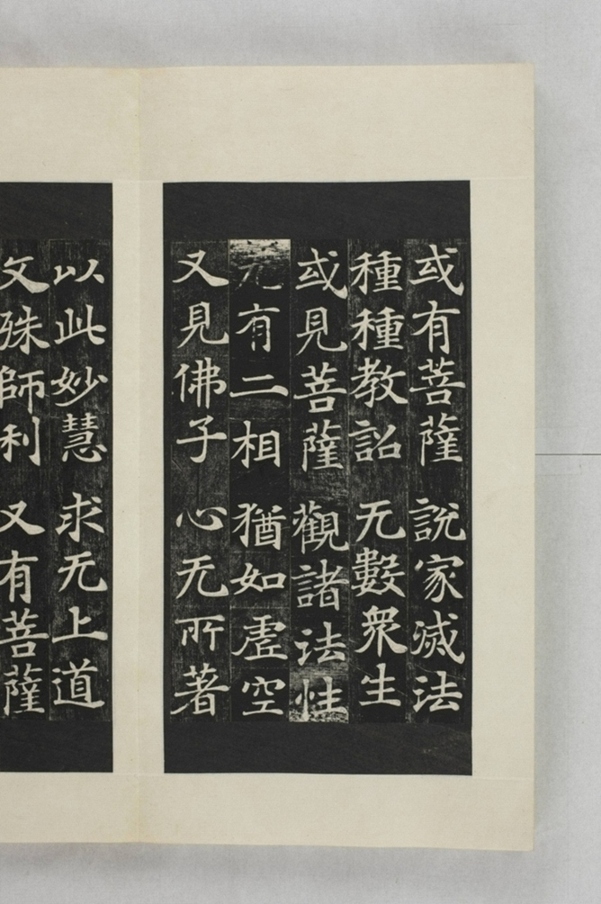 或有菩薩 說家滅法
種種教詔 无數衆生
或見菩薩 觀諸法性
无有二相 猶如虛空
又見佛子 心无所著
以此妙慧 求无上道
文殊師利 又有菩薩